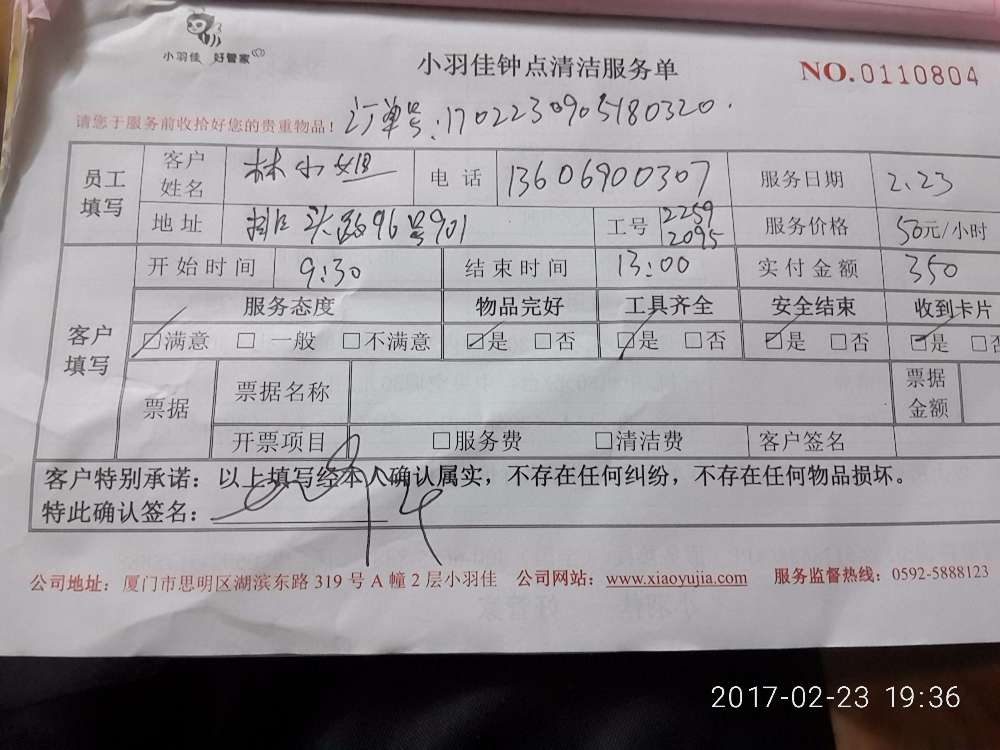 小羽佳 好管家
小羽佳钟点清洁服务单
NO.0110804
请您于服务前收拾好您的贵重物品！
订单号:1702230905180320.
员工填写 客户姓名 林小姐 电话 13606900307 服务日期 2.23
地址 头路96号901 工号 2259 2095 服务价格 50元/小时
客户填写 开始时间 9:30 结束时间 13:00 实付金额 350
服务态度 物品完好 工具齐全 安全结束 收到卡片
☑满意 □一般 □不满意 ☑是 □否 ☑是 □否 ☑是 □否 ☑是 □否
票据 票据名称 票据金额
开票项目 □服务费 □清洁费 客户签名
客户特别承诺：以上填写经本人确认属实，不存在任何纠纷，不存在任何物品损坏。
特此确认签名：
公司地址：厦门市思明区湖滨东路 319 号 A 幢 2 层小羽佳 公司网站：www.xiaoyujia.com 服务监督热线：0592-5888123
2017-02-23 19:36